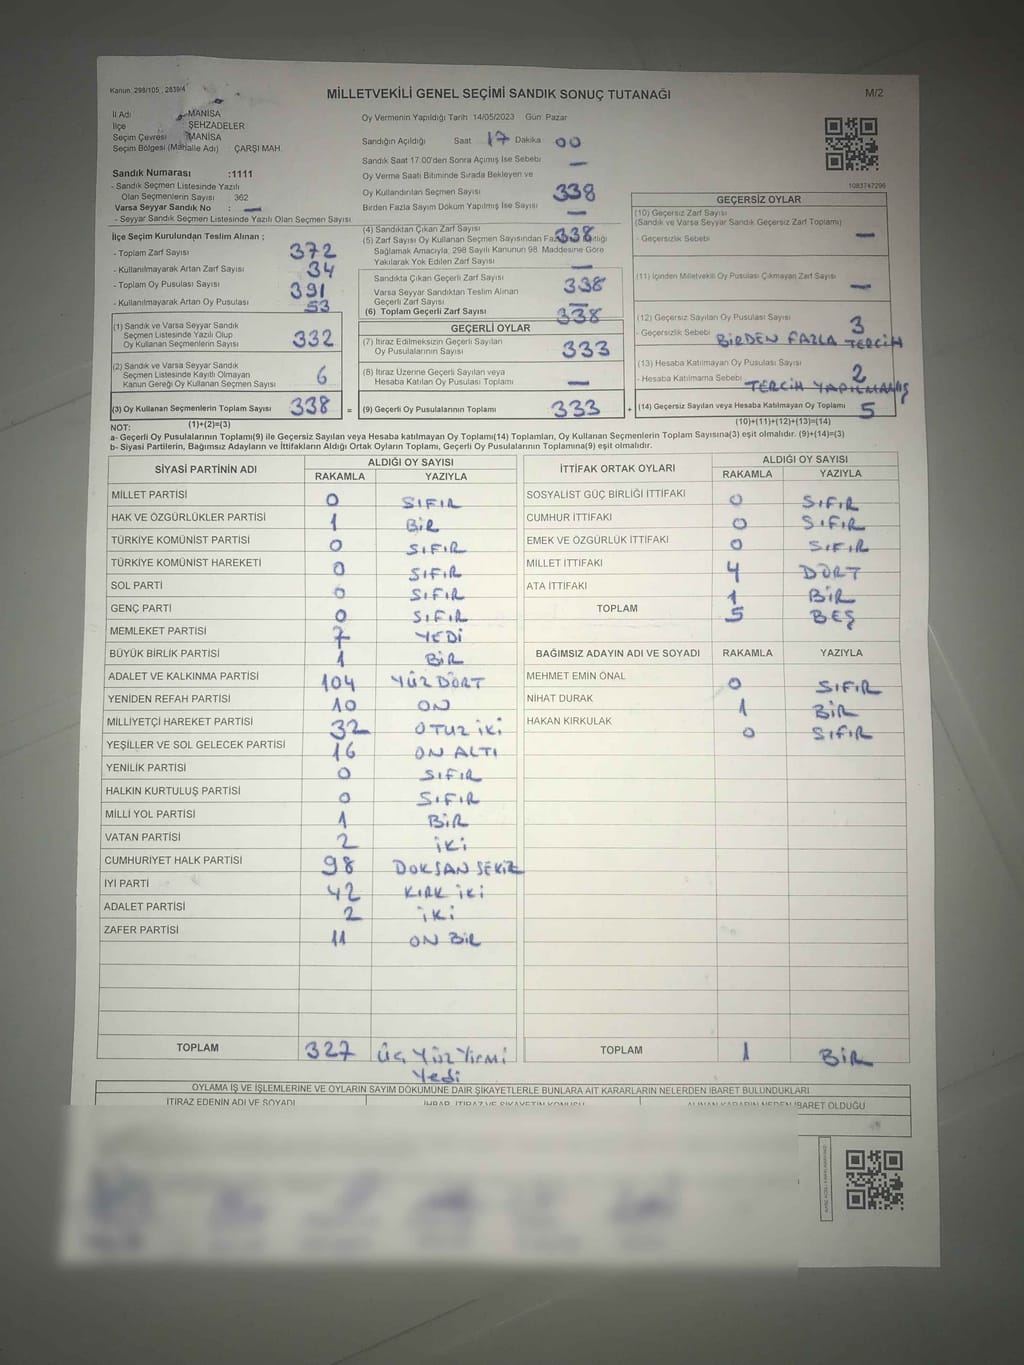 Kanun: 298/105, 2839/4
MİLLETVEKİLİ GENEL SEÇİMİ SANDIK SONUÇ TUTANAĞI
M/2
İl Adı : MANİSA
İlçe : ŞEHZADELER
Seçim Çevresi : MANİSA
Seçim Bölgesi (Mahalle Adı) : ÇARŞI MAH.
Sandık Numarası :1111
- Sandık Seçmen Listesinde Yazılı
Olan Seçmenlerin Sayısı : 362
Varsa Seyyar Sandık No : —
- Seyyar Sandık Seçmen Listesinde Yazılı Olan Seçmen Sayısı
Oy Vermenin Yapıldığı Tarih 14/05/2023 Gün: Pazar
Sandığın Açıldığı Saat 17 Dakika 00
Sandık Saat 17.00'den Sonra Açımış İse Sebebi —
Oy Verme Saati Bitiminde Sırada Bekleyen ve
Oy Kullandırılan Seçmen Sayısı 338
Birden Fazla Sayım Döküm Yapılmış İse Sayısı —
1083747296
İlçe Seçim Kurulundan Teslim Alınan ;
- Toplam Zarf Sayısı 372
- Kullanılmayarak Artan Zarf Sayısı 34
- Toplam Oy Pusulası Sayısı 391
- Kullanılmayarak Artan Oy Pusulası 53
(1) Sandık ve Varsa Seyyar Sandık
Seçmen Listesinde Yazılı Olup
Oy Kullanan Seçmenlerin Sayısı 332
(2) Sandık ve Varsa Seyyar Sandık
Seçmen Listesinde Kayıtlı Olmayan
Kanun Gereği Oy Kullanan Seçmen Sayısı 6
(3) Oy Kullanan Seçmenlerin Toplam Sayısı 338 =
(1)+(2)=(3)
(4) Sandıktan Çıkan Zarf Sayısı 338
(5) Zarf Sayısı Oy Kullanan Seçmen Sayısından
Sağlamak Amacıyla, 298 Sayılı Kanunun 98. Maddesine Göre
Yakılarak Yok Edilen Zarf Sayısı —
Sandıkta Çıkan Geçerli Zarf Sayısı 338
Varsa Seyyar Sandıktan Teslim Alınan
Geçerli Zarf Sayısı —
(6) Toplam Geçerli Zarf Sayısı 338
GEÇERLİ OYLAR
(7) İtiraz Edilmeksizin Geçerli Sayılan
Oy Pusulalarının Sayısı 333
(8) İtiraz Üzerine Geçerli Sayılan veya
Hesaba Katılan Oy Pusulası Toplamı —
(9) Geçerli Oy Pusulalarının Toplamı 333 +
GEÇERSİZ OYLAR
(10) Geçersiz Zarf Sayısı
(Sandık ve Varsa Seyyar Sandık Geçersiz Zarf Toplamı)
- Geçersizlik Sebebi : —
(11) İçinden Milletvekili Oy Pusulası Çıkmayan Zarf Sayısı
—
(12) Geçersiz Sayılan Oy Pusulası Sayısı 3
- Geçersizlik Sebebi : BİRDEN FAZLA TERCİH
(13) Hesaba Katılmayan Oy Pusulası Sayısı 2
- Hesaba Katılmama Sebebi : TERCİH YAPILMAMIŞ
(14) Geçersiz Sayılan veya Hesaba Katılmayan Oy Toplamı 5
(10)+(11)+(12)+(13)=(14)
NOT:
a- Geçerli Oy Pusulalarının Toplamı(9) ile Geçersiz Sayılan veya Hesaba katılmayan Oy Toplamı(14) Toplamları, Oy Kullanan Seçmenlerin Toplam Sayısına(3) eşit olmalıdır. (9)+(14)=(3)
b- Siyasi Partilerin, Bağımsız Adayların ve İttifakların Aldığı Ortak Oyların Toplamı, Geçerli Oy Pusulalarının Toplamına(9) eşit olmalıdır.
SİYASİ PARTİNİN ADI ALDIĞI OY SAYISI
RAKAMLA YAZIYLA
MİLLET PARTİSİ 0 SIFIR
HAK VE ÖZGÜRLÜKLER PARTİSİ 1 BİR
TÜRKİYE KOMÜNİST PARTİSİ 0 SIFIR
TÜRKİYE KOMÜNİST HAREKETİ 0 SIFIR
SOL PARTİ 0 SIFIR
GENÇ PARTİ 0 SIFIR
MEMLEKET PARTİSİ 7 YEDİ
BÜYÜK BİRLİK PARTİSİ 1 BİR
ADALET VE KALKINMA PARTİSİ 104 YÜZ DÖRT
YENİDEN REFAH PARTİSİ 10 ON
MİLLİYETÇİ HAREKET PARTİSİ 32 OTUZ İKİ
YEŞİLLER VE SOL GELECEK PARTİSİ 16 ON ALTI
YENİLİK PARTİSİ 0 SIFIR
HALKIN KURTULUŞ PARTİSİ 0 SIFIR
MİLLİ YOL PARTİSİ 1 BİR
VATAN PARTİSİ 2 İKİ
CUMHURİYET HALK PARTİSİ 98 DOKSAN SEKİZ
İYİ PARTİ 42 KIRK İKİ
ADALET PARTİSİ 2 İKİ
ZAFER PARTİSİ 11 ON BİR
TOPLAM 327 ÜÇ YÜZ YİRMİ
Yedi
İTTİFAK ORTAK OYLARI ALDIĞI OY SAYISI
RAKAMLA YAZIYLA
SOSYALİST GÜÇ BİRLİĞİ İTTİFAKI 0 SIFIR
CUMHUR İTTİFAKI 0 SIFIR
EMEK VE ÖZGÜRLÜK İTTİFAKI 0 SIFIR
MİLLET İTTİFAKI 4 DÖRT
ATA İTTİFAKI 1 BİR
TOPLAM 5 BEŞ
BAĞIMSIZ ADAYIN ADI VE SOYADI RAKAMLA YAZIYLA
MEHMET EMİN ÖNAL 0 SIFIR
NİHAT DURAK 1 BİR
HAKAN KIRKULAK 0 SIFIR
TOPLAM 1 BİR
OYLAMA İŞ VE İŞLEMLERİNE VE OYLARIN SAYIM DÖKÜMÜNE DAİR ŞİKAYETLERLE BUNLARA AİT KARARLARIN NELERDEN İBARET BULUNDUKLARI
İTİRAZ EDENİN ADI VE SOYADI İHBAR, İTİRAZ VE ŞİKAYETİN KONUSU ALINAN KARARIN NEDEN İBARET OLDUĞU